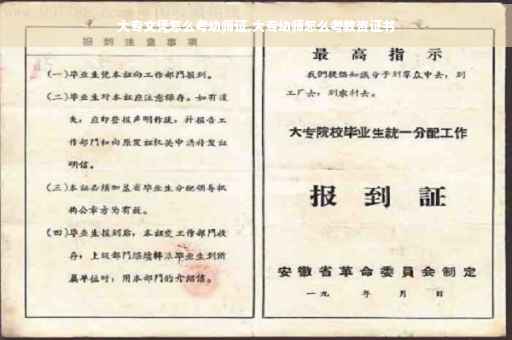 大专文凭怎么考幼师证,大专幼师怎么考教资证书
报到注意事项
(一)毕业生凭本证向工作部门报到。
(二)毕业生对本证应注意保存。如有遗
失,应即登报声明作废,并报告工
作部门和向原发证机关申请补发证
明信。
(三)本证必须加盖省毕业生分配领导机
构公章方为有效。
(四)毕业生报到后,本证交工作部门收
存,上级部门
毕业生到所
属单位时,用本部门的介绍信。
最高指示
我们提倡知识分子到群众中去,到
工厂去,到农村去。
大专院校毕业生统一分配工作
报到証
安徽省革命委员会制定
一九 年 月 日